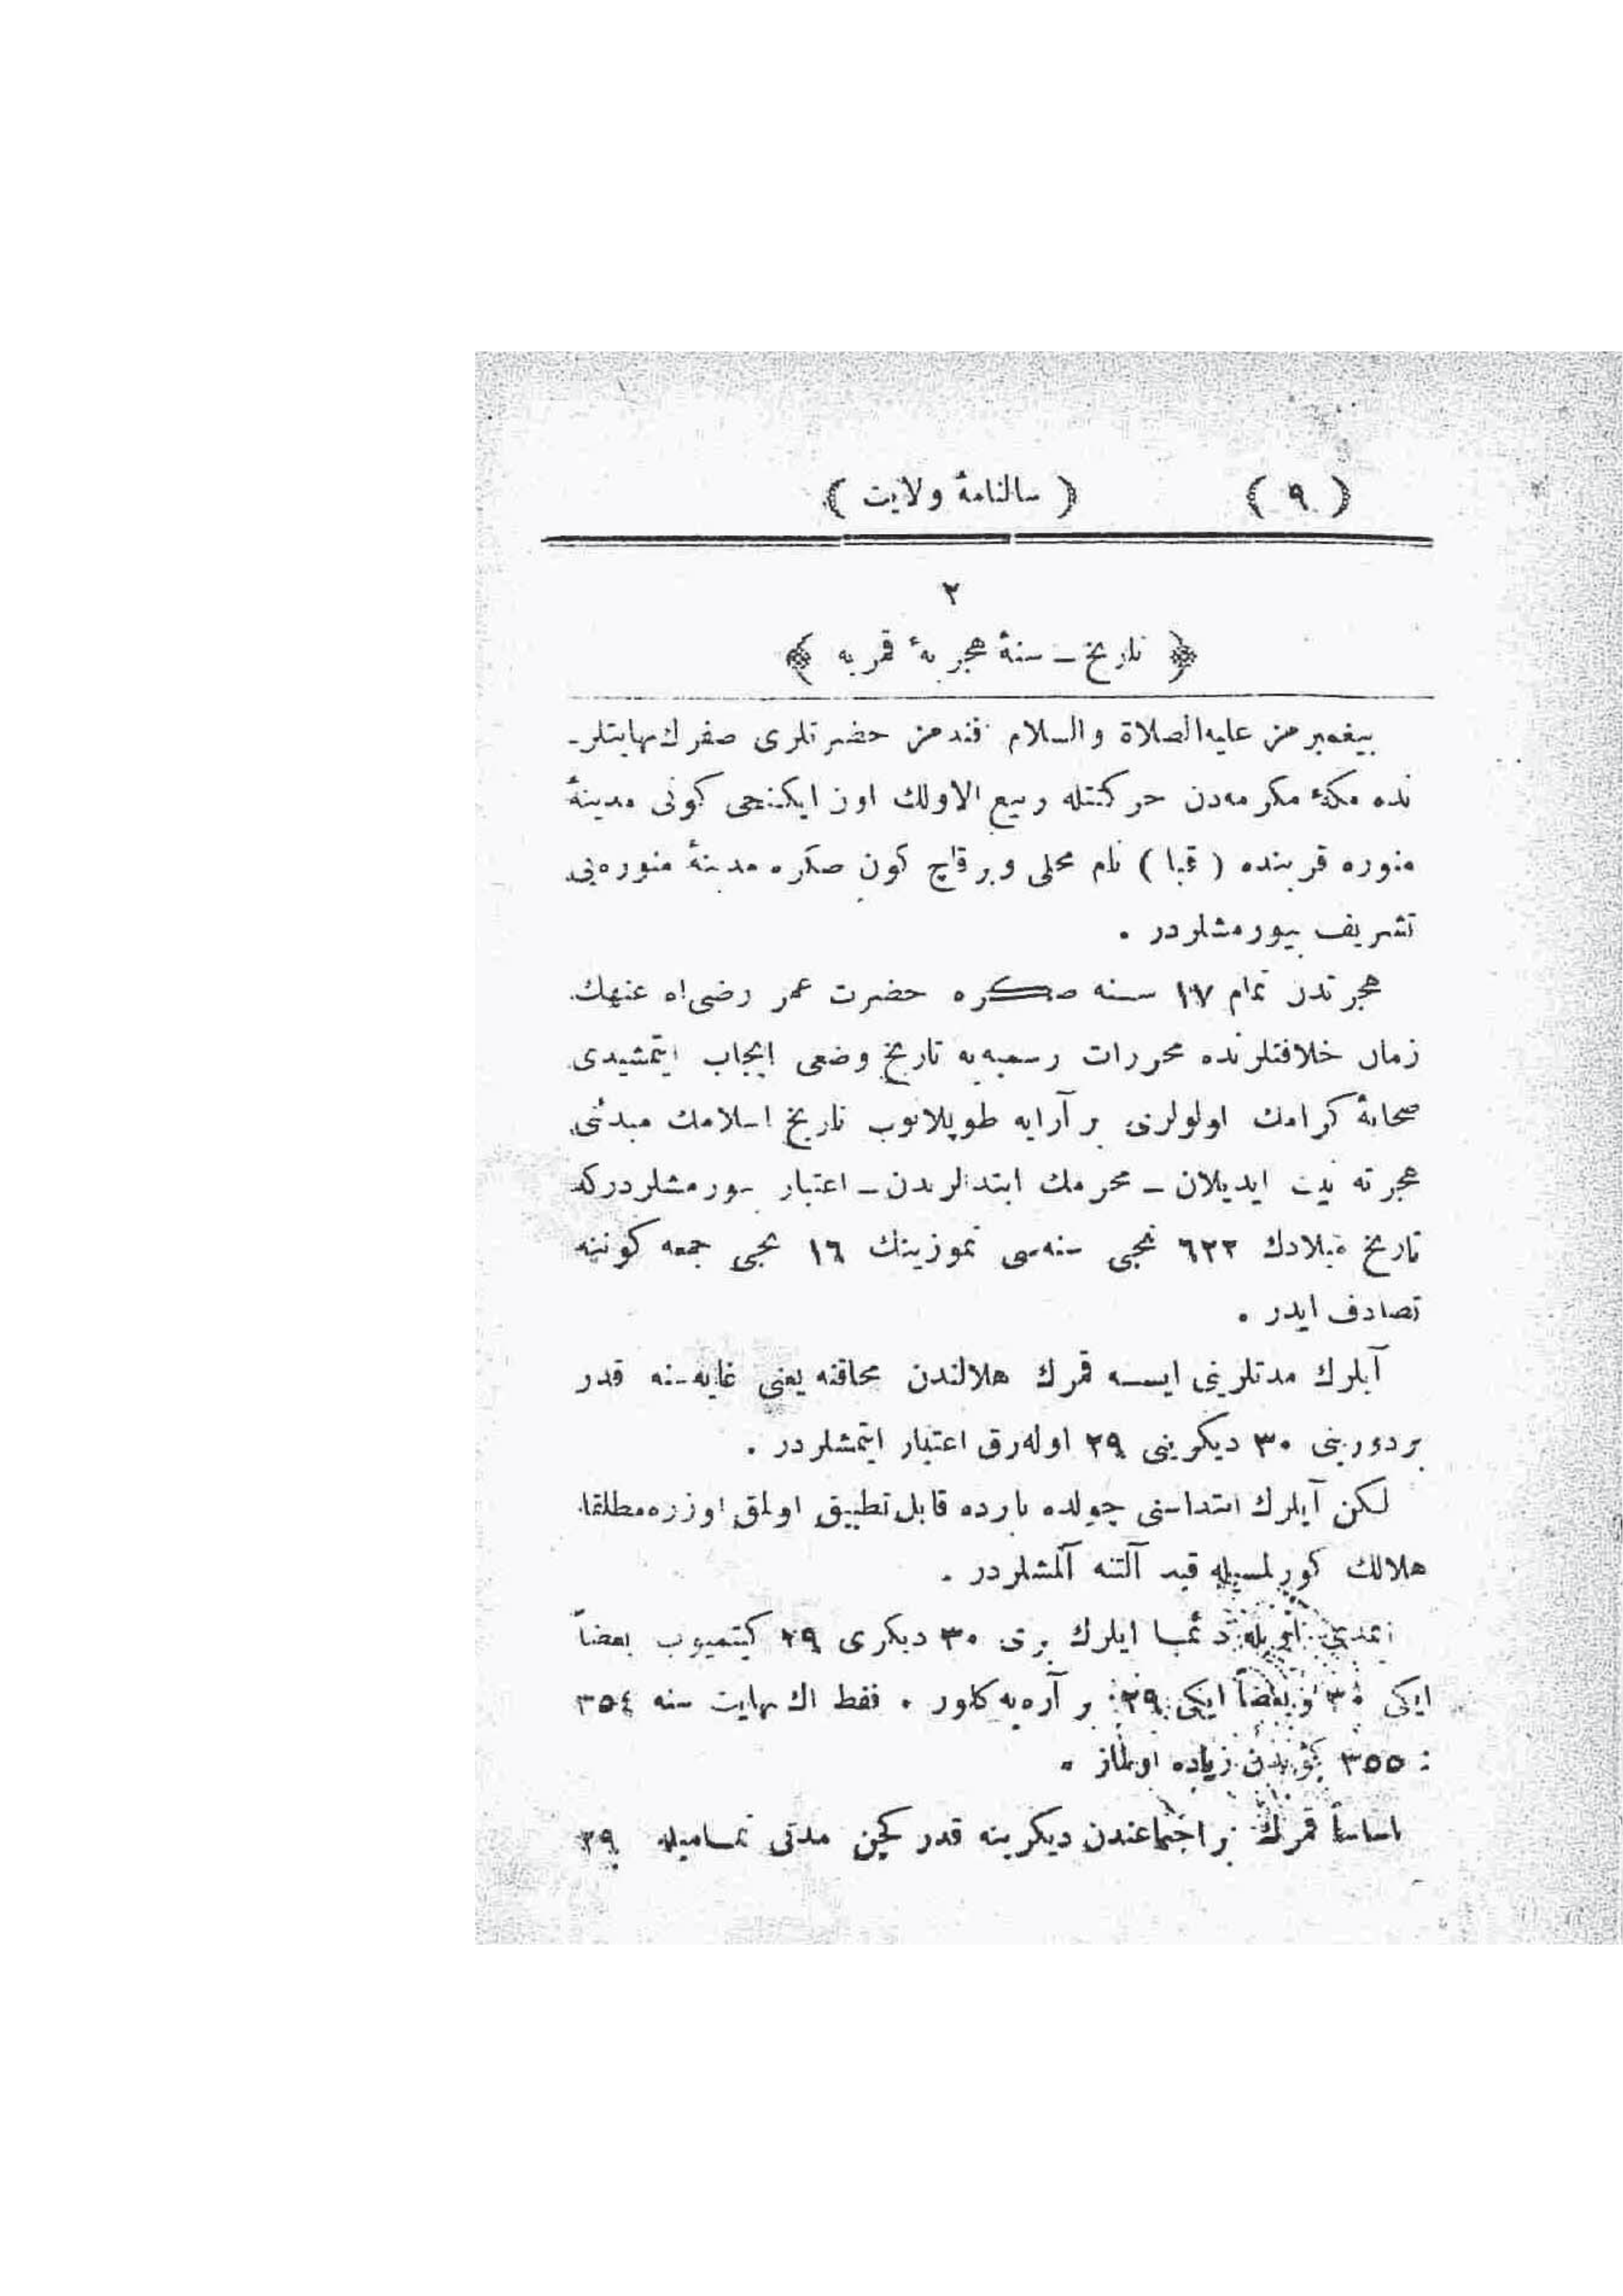 ( ٩ ) ( سالنامهٔ ولايت )
٢
﴿ تاريخ ـ سنهٔ هجريهٔ قمريه ﴾
پيغمبرمز عليه‌الصلاة والسلام افندمز حضرتلرى صفرك نهايتلر-
نده مكهٔ مكرمه‌دن حركتله ربيع الاولك اون ايكنجى كونى مدينهٔ
منوره قربنده ( قبا ) نام محلى وبر قاچ كون صكره مدينهٔ منوره‌يى
تشريف بيورمشلردر .
هجرتدن تمام ١٧ سنه صكره حضرت عمر رضى‌اه عنهك
زمان خلافتلرنده محررات رسميه‌يه تاريخ وضعى ايجاب ايتمشيدى
صحابهٔ كرامك اولولرى بر آرايه طوپلانوب تاريخ اسلامك مبدئنى
هجرته نيت ايديلان ـ محرمك ابتدالرندن ـ اعتبار بيورمشلردركه
تاريخ ميلادك ٦٢٢ نجى سنه‌سى تموزينك ١٦ نجى جمعه كوننه
تصادف ايدر .
آيلرك مدتلرينى ايسه قمرك هلالندن محاقنه يعنى غايه‌سنه قدر
بر دورينى ٣٠ ديكرينى ٢٩ اوله‌رق اعتبار ايتمشلردر .
لكن آيلرك ابتداسنى چولده بارده قابل تطبيق اولمق اوزره مطلقا
هلالك كورلمسيله قيد آلتنه آلمشلردر .
ايلرك برى ٣٠ ديكرى ٢٩ كيتميوب بعضاً
ايكى ٣٠ و بعضاً ايكى ٢٩ بر آره‌يه كلور . فقط اك نهايت سنه ٣٥٤
: ٣٥٥ كوندن زياده اولماز .
اساساً قمرك بر اجتماعندن ديكرينه قدر كچن مدتى تماميله ٢٩